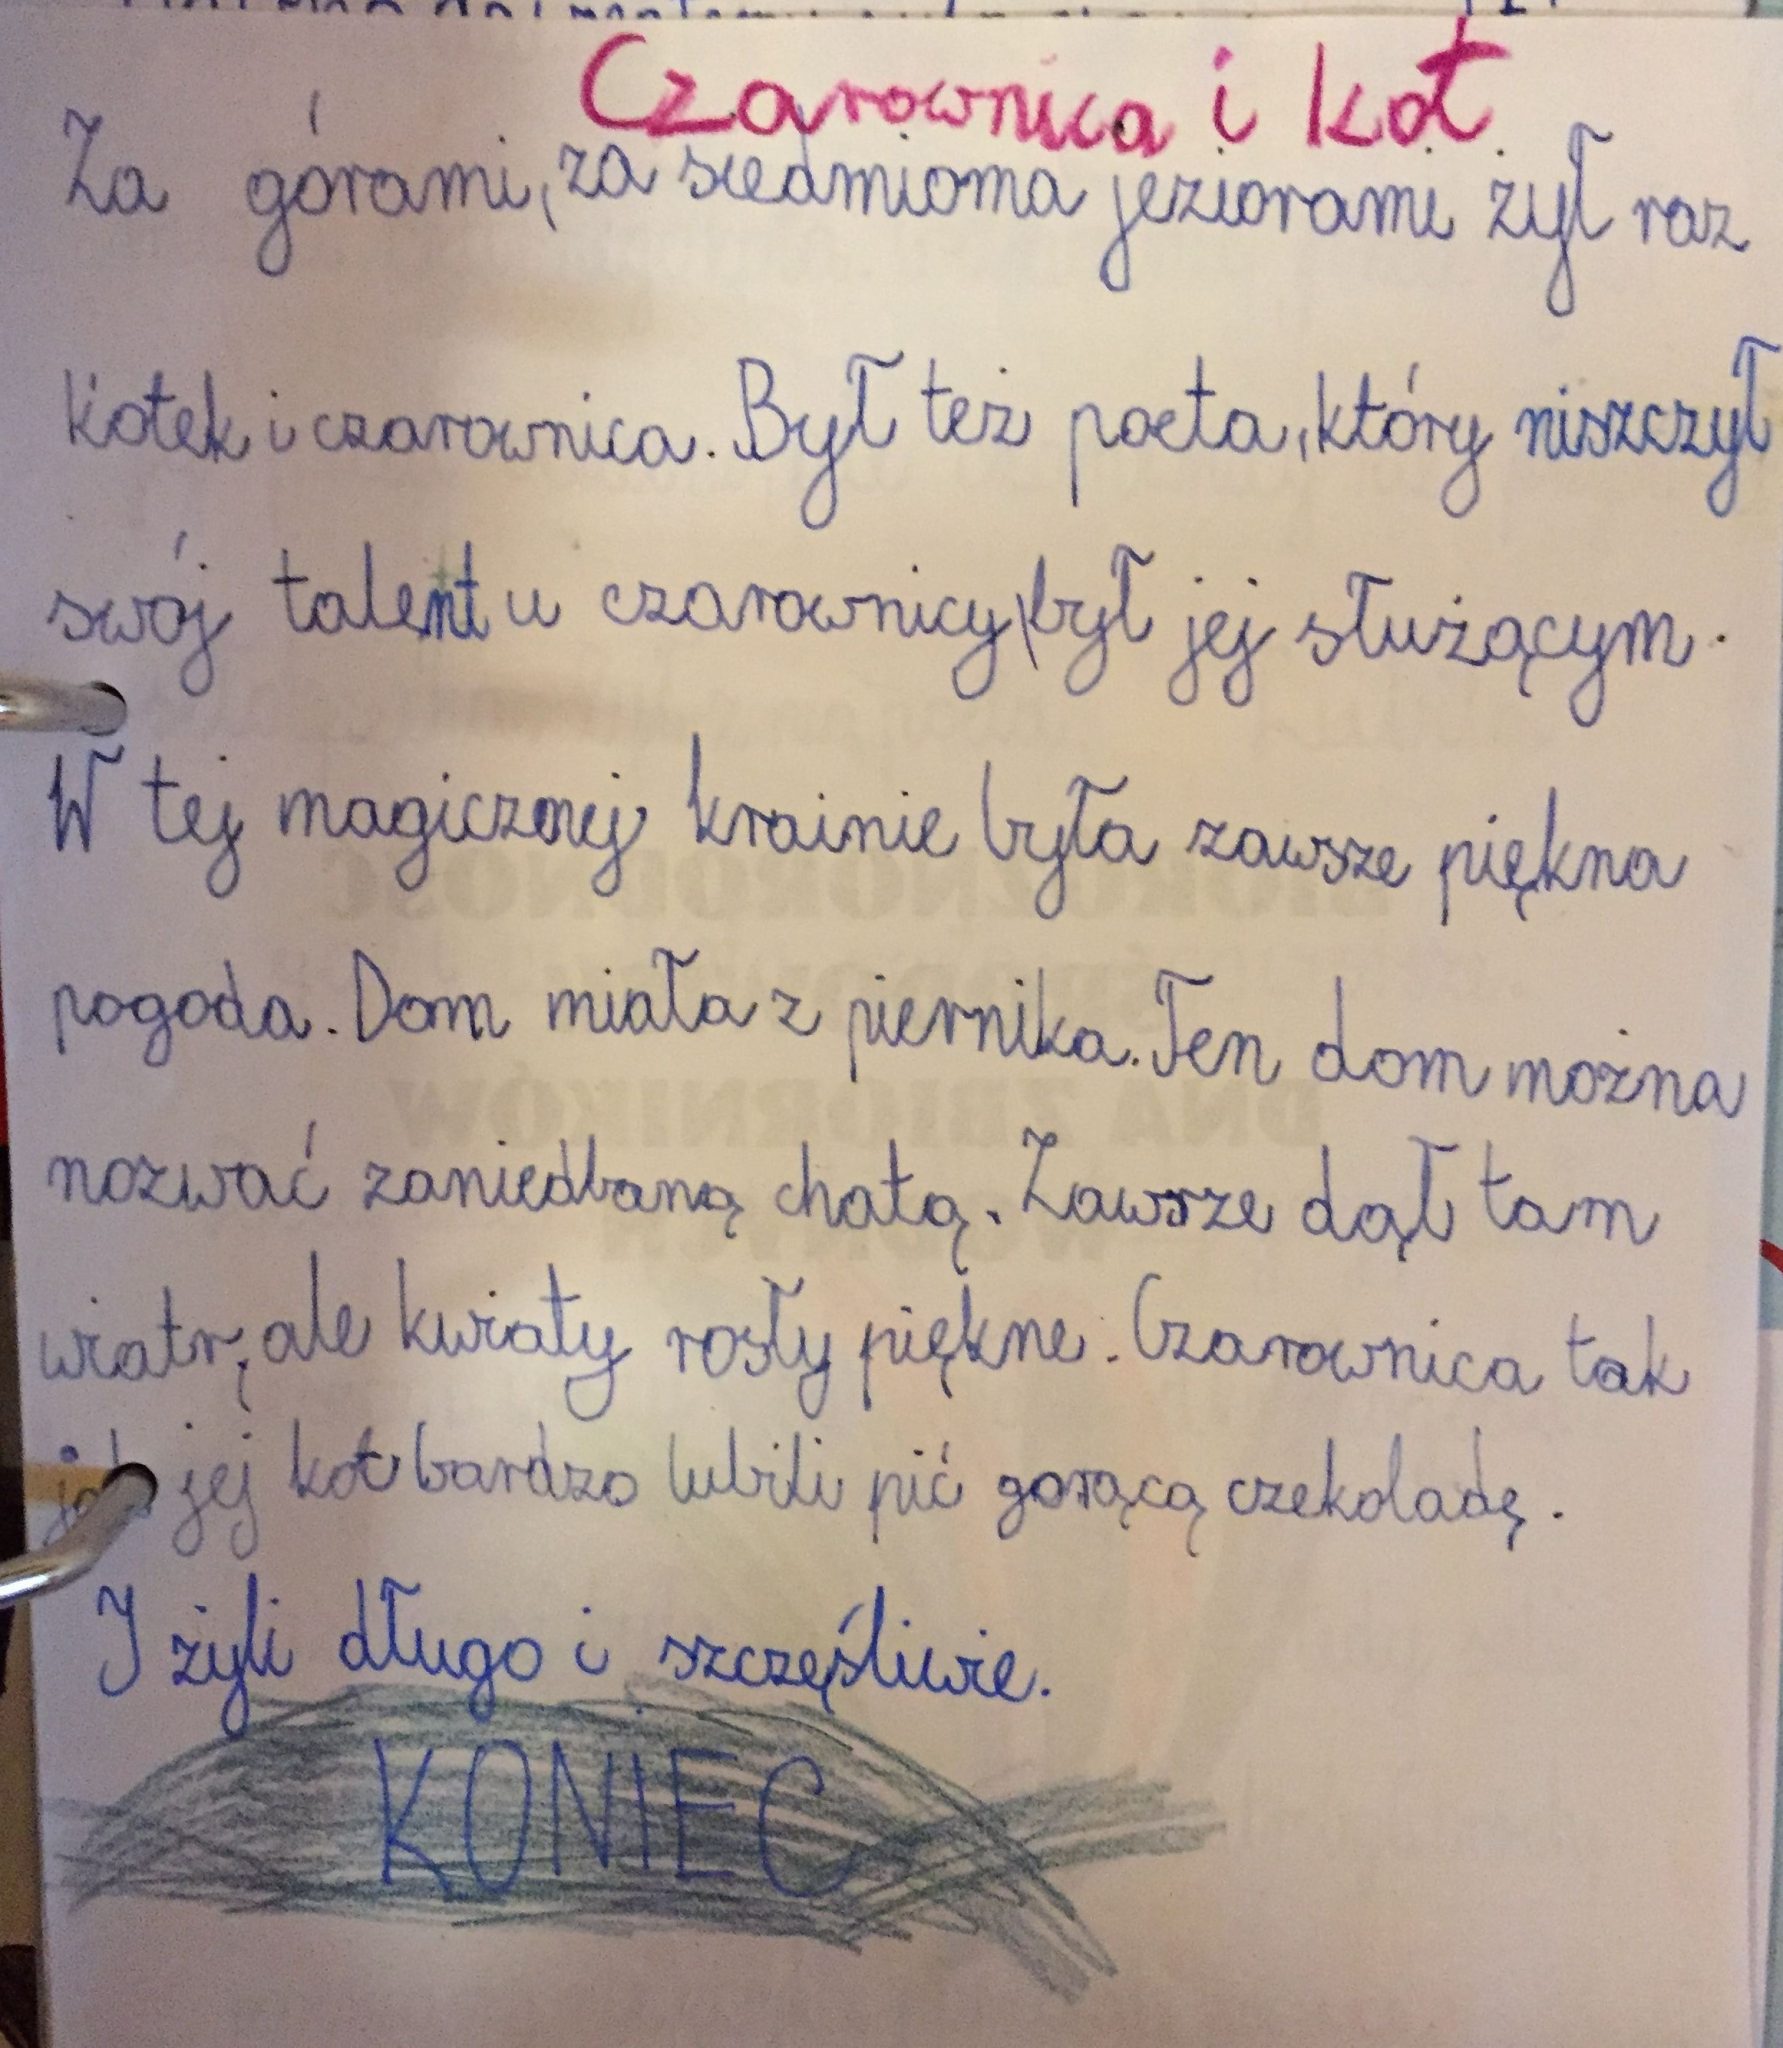 Czarownica i kot
Za górami, za siedmioma jeziorami żył raz
kotek i czarownica. Był też poeta, który niszczył
swój talent u czarownicy, był jej służącym.
W tej magicznej krainie była zawsze piękna
pogoda. Dom miała z piernika. Ten dom można
nazwać zaniedbaną chatą. Zawsze dął tam
wiatr, ale kwiaty rosły piękne. Czarownica tak
jak jej kot bardzo lubili pić gorącą czekoladę.
I żyli długo i szczęśliwie.
KONIEC